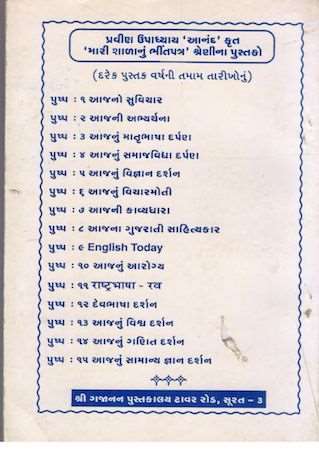 પ્રવીણ ઉપાધ્યાય 'આનંદ' કૃત
'મારી શાળાનું ભીંતપત્ર' શ્રેણીના પુસ્તકો
(દરેક પુસ્તક વર્ષની તમામ તારીખોનું)
પુષ્પ : ૧ આજનો સુવિચાર
પુષ્પ : ૨ આજની અભ્યર્થના
પુષ્પ : ૩ આજનું માતૃભાષા દર્પણ
પુષ્પ : ૪ આજનું સમાજવિદ્યા દર્પણ
પુષ્પ : ૫ આજનું વિજ્ઞાન દર્શન
પુષ્પ : ૬ આજનું વિચારમોતી
પુષ્પ : ૭ આજની કાવ્યધારા
પુષ્પ : ૮ આજના ગુજરાતી સાહિત્યકાર
પુષ્પ : ૯ English Today
પુષ્પ : ૧૦ આજનું આરોગ્ય
પુષ્પ : ૧૧ राष्ट्रभाषा - रत्न
પુષ્પ : ૧૨ દેવભાષા દર્શન
પુષ્પ : ૧૩ આજનું વિશ્વ દર્શન
પુષ્પ : ૧૪ આજનું ગણિત દર્શન
પુષ્પ : ૧૫ આજનું સામાન્ય જ્ઞાન દર્શન
શ્રી ગજાનન પુસ્તકાલય ટાવર રોડ, સૂરત - ૩